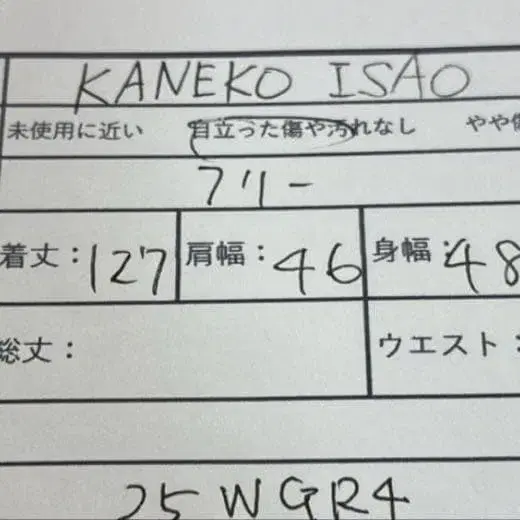 KANEKO ISAO
未使用に近い 目立った傷や汚れなし やや傷
フリー
着丈：127 肩幅：46 身幅：48
総丈： ウエスト：
25WGR4